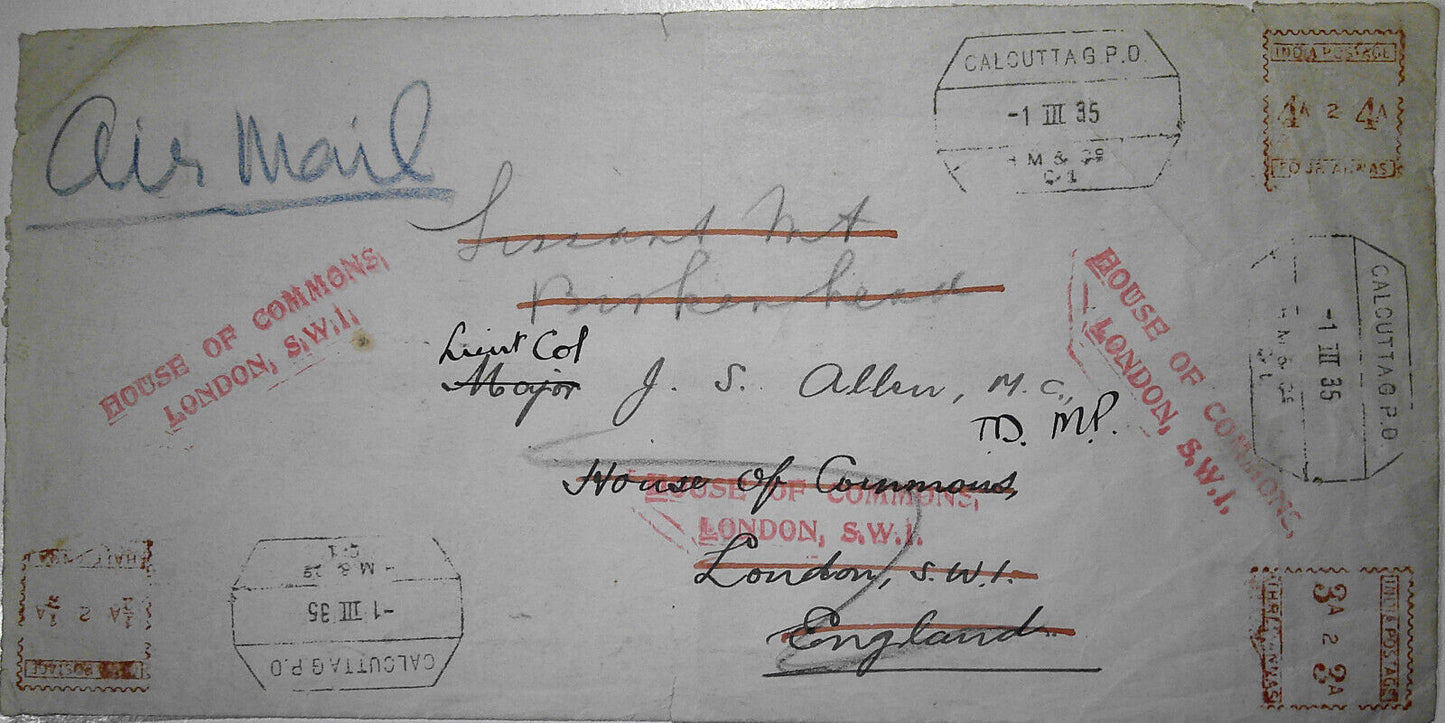 Air Mail
CALCUTTA G.P.O.
-1 III 35
M &
C-1
INDIA POSTAGE
4A 2 4A
FOUR ANNAS
Mt
Birkenhead
HOUSE OF COMMONS,
LONDON, S.W.1.
HOUSE OF COMMONS,
LONDON, S.W.1.
CALCUTTA G.P.O.
-1 III 35
M &
Lieut Col
Major J. S. Allen, M.C.,
TD. M.P.
House of Commons,
HOUSE OF COMMONS,
LONDON, S.W.1.
London, S.W.1.
England
HALF ANNA
½A 2 ½A
POSTAGE
CALCUTTA G.P.O.
-1 III 35
M &
C-1
INDIA POSTAGE
3A 2 3A
THREE ANNAS